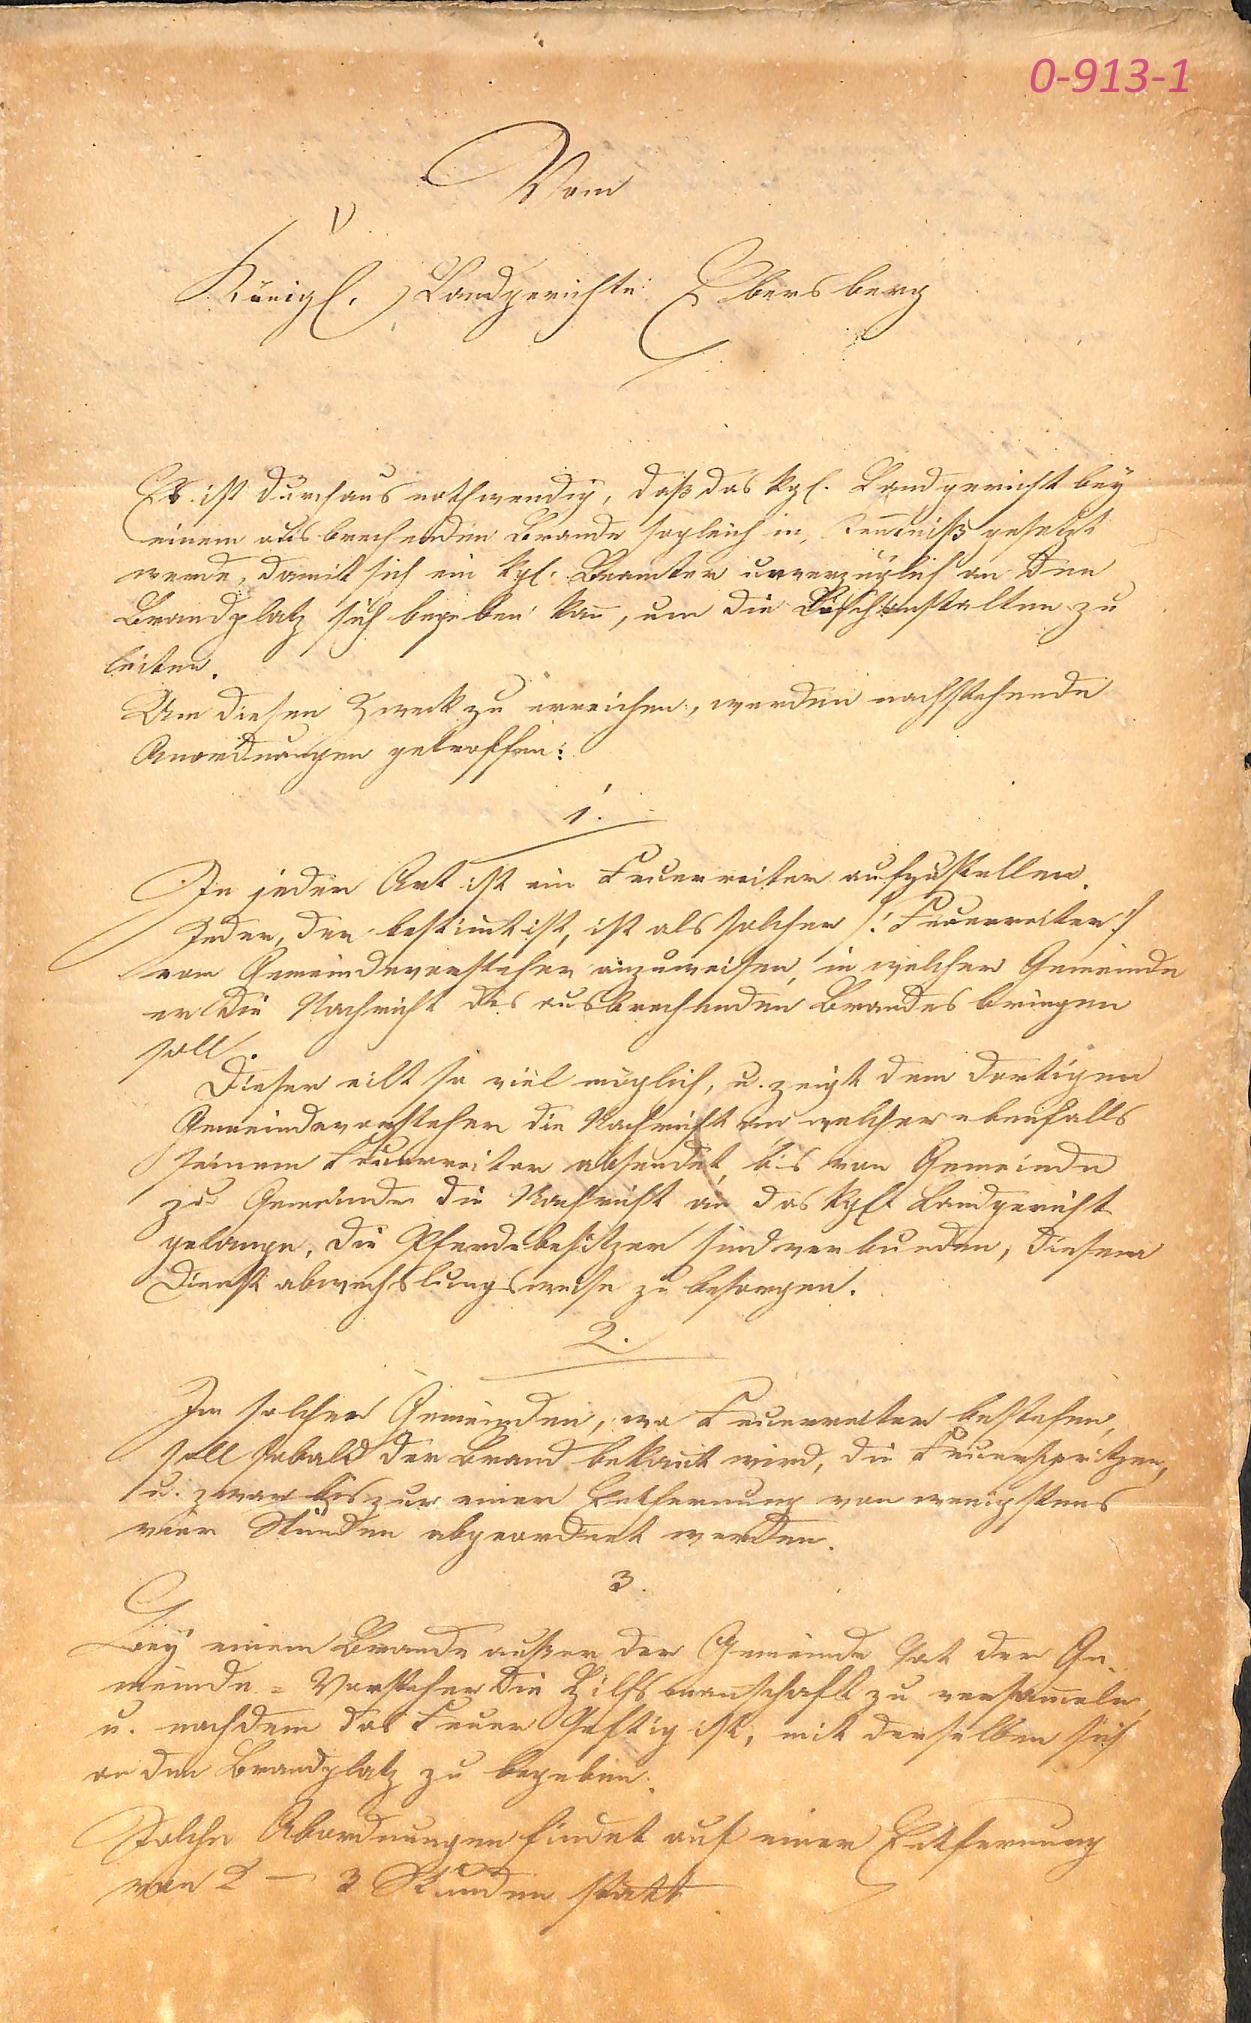 0-913-1
Vom
Königl. Landgerichte Ebersberg
Es ist durchaus nothwendig, daß das kgl. Landgericht bey
einem ausbrechenden Brande sogleich in Kentniß gesetzt
werde, damit sich ein kgl. Beamter unverzüglich an den
Brandplatz sich begeben kan, um die Löschanstalten zu
leiten.
Um diesen Zweck zu erreichen, werden nachstehende
Anordnungen getroffen:
1.
In jeder Ort ist ein Feuerreiter aufzustellen.
Jeder, der bestimt ist, ist als solcher /: Feuerreiter :/
vom Gemeindevorsteher anzuweisen, in welcher Gemeinde
er die Nachricht des ausbrechenden Brandes bringen
soll.
Dieser eilt so viel möglich, u. zeigt dem dortigen
Gemeindevorsteher die Nachricht an welcher ebenfalls
seinem Feuerreiter absendet bis von Gemeinde
zu Gemeinde die Nachricht an das kgl. Landgericht
gelange, die Pferdebesitzer sind verbunden, diesem
Dienst abwechslungsweise zu besorgen.
2.
In solchen Gemeinden, wo Feuerreiter bestehen,
soll sobald der Brand bekant wird, die Feuerspritzen,
u. zwar bis zur einer Entfernung von wenigstens
vier Stunden abgeordnet werden.
3.
Bey einem Brande außer der Gemeinde hat der Ge-
meinde=Vorsteher die Hilfsmanschaft zu versameln,
u. nachdem das Feuer heftig ist, mit derselben sich
an den Brandplatz zu begeben.
Solche Abordnungen findet auf einer Entfernung
von 2 — 3 Stunden statt